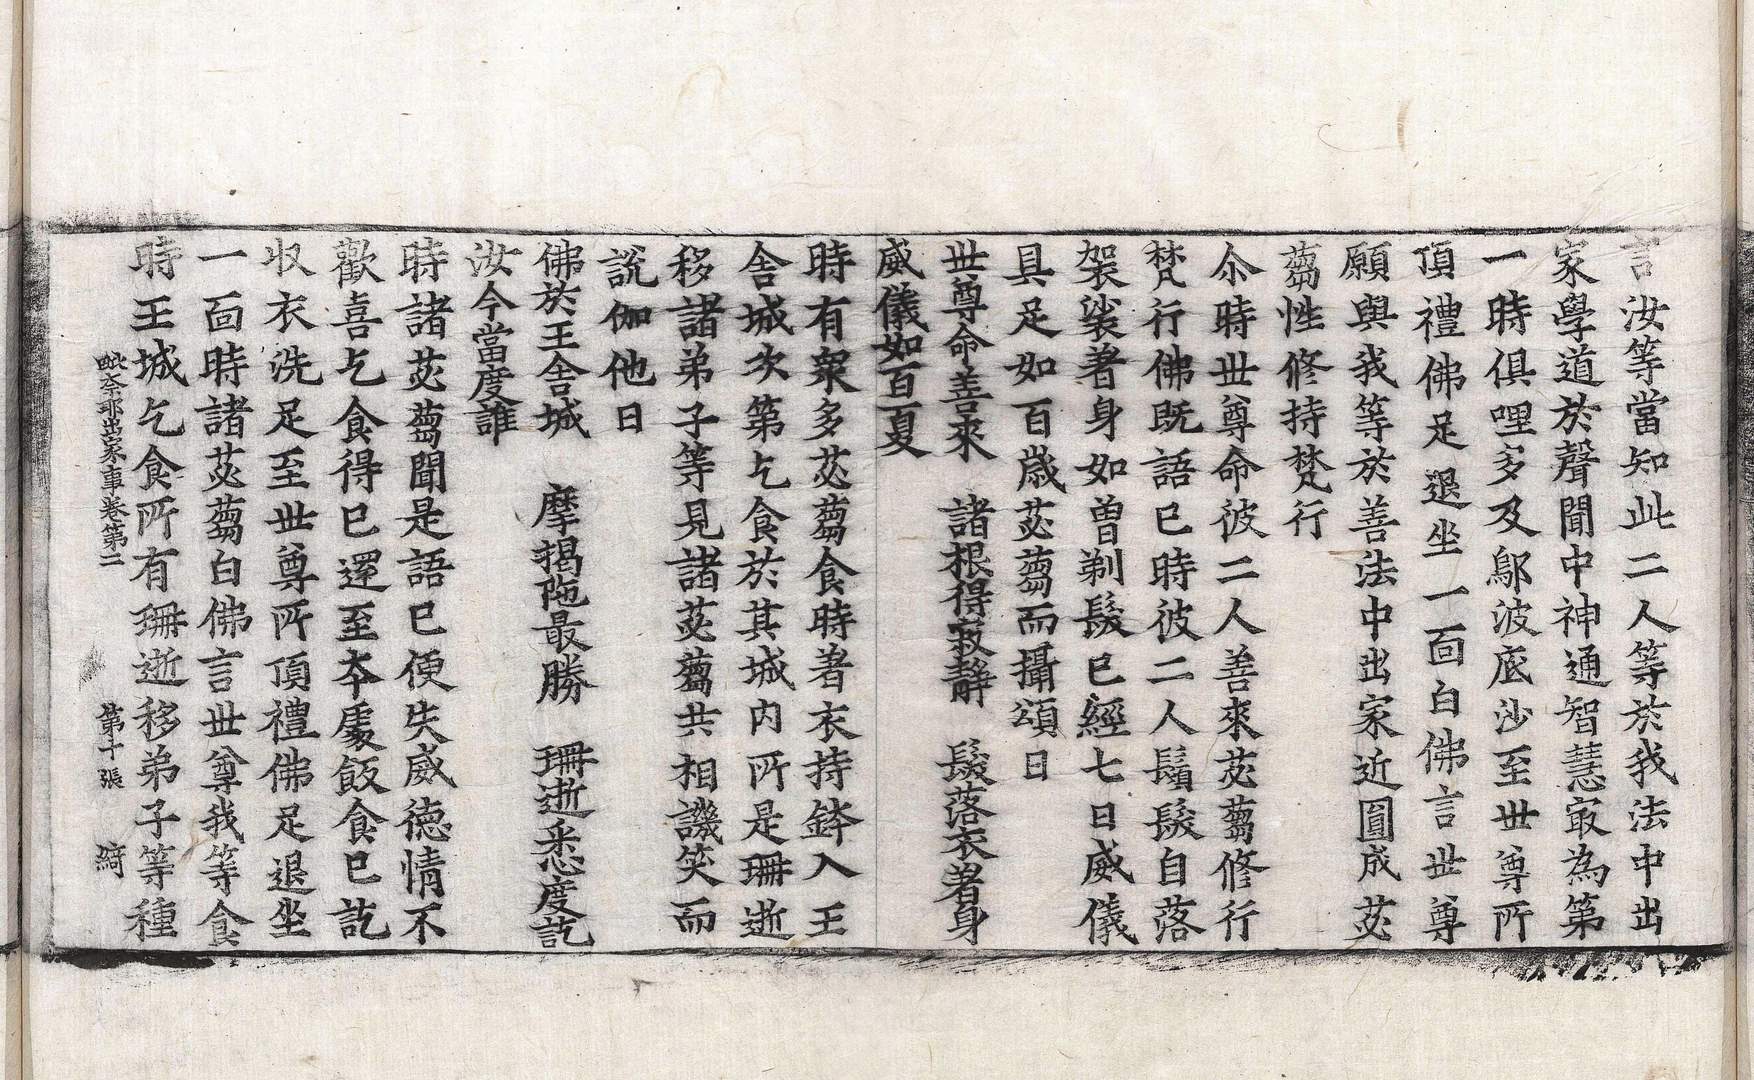 言汝等當知此二人等於我法中出
家學道於聲聞中神通智慧㝡為第
一時俱哩多及鄔波底沙至世尊所
頂禮佛足退坐一面白佛言世尊
願與我等於善法中出家近圓成苾
蒭性修持梵行
尒時世尊命彼二人善來苾蒭修行
梵行佛既語已時彼二人鬚髮自落
袈裟著身如曾剃髮已經七日威儀
具足如百歲苾蒭而攝頌曰
世尊命善來　諸根得寂靜　髮落衣著身
威儀如百夏
時有衆多苾蒭食時著衣持鉢入王
舍城次第乞食於其城内所是珊逝
移諸弟子等見諸苾蒭共相譏笑而
說伽他曰
佛於王舍城　摩揭陁最勝　珊逝悉度訖
汝今當度誰
時諸苾蒭聞是語已便失威德情不
歡喜乞食得已還至本處飯食已訖
收衣洗足至世尊所頂禮佛足退坐
一面時諸苾蒭白佛言世尊我等食
時王城乞食所有珊逝移弟子等種
毗奈耶出家事卷第二　第十張　綺